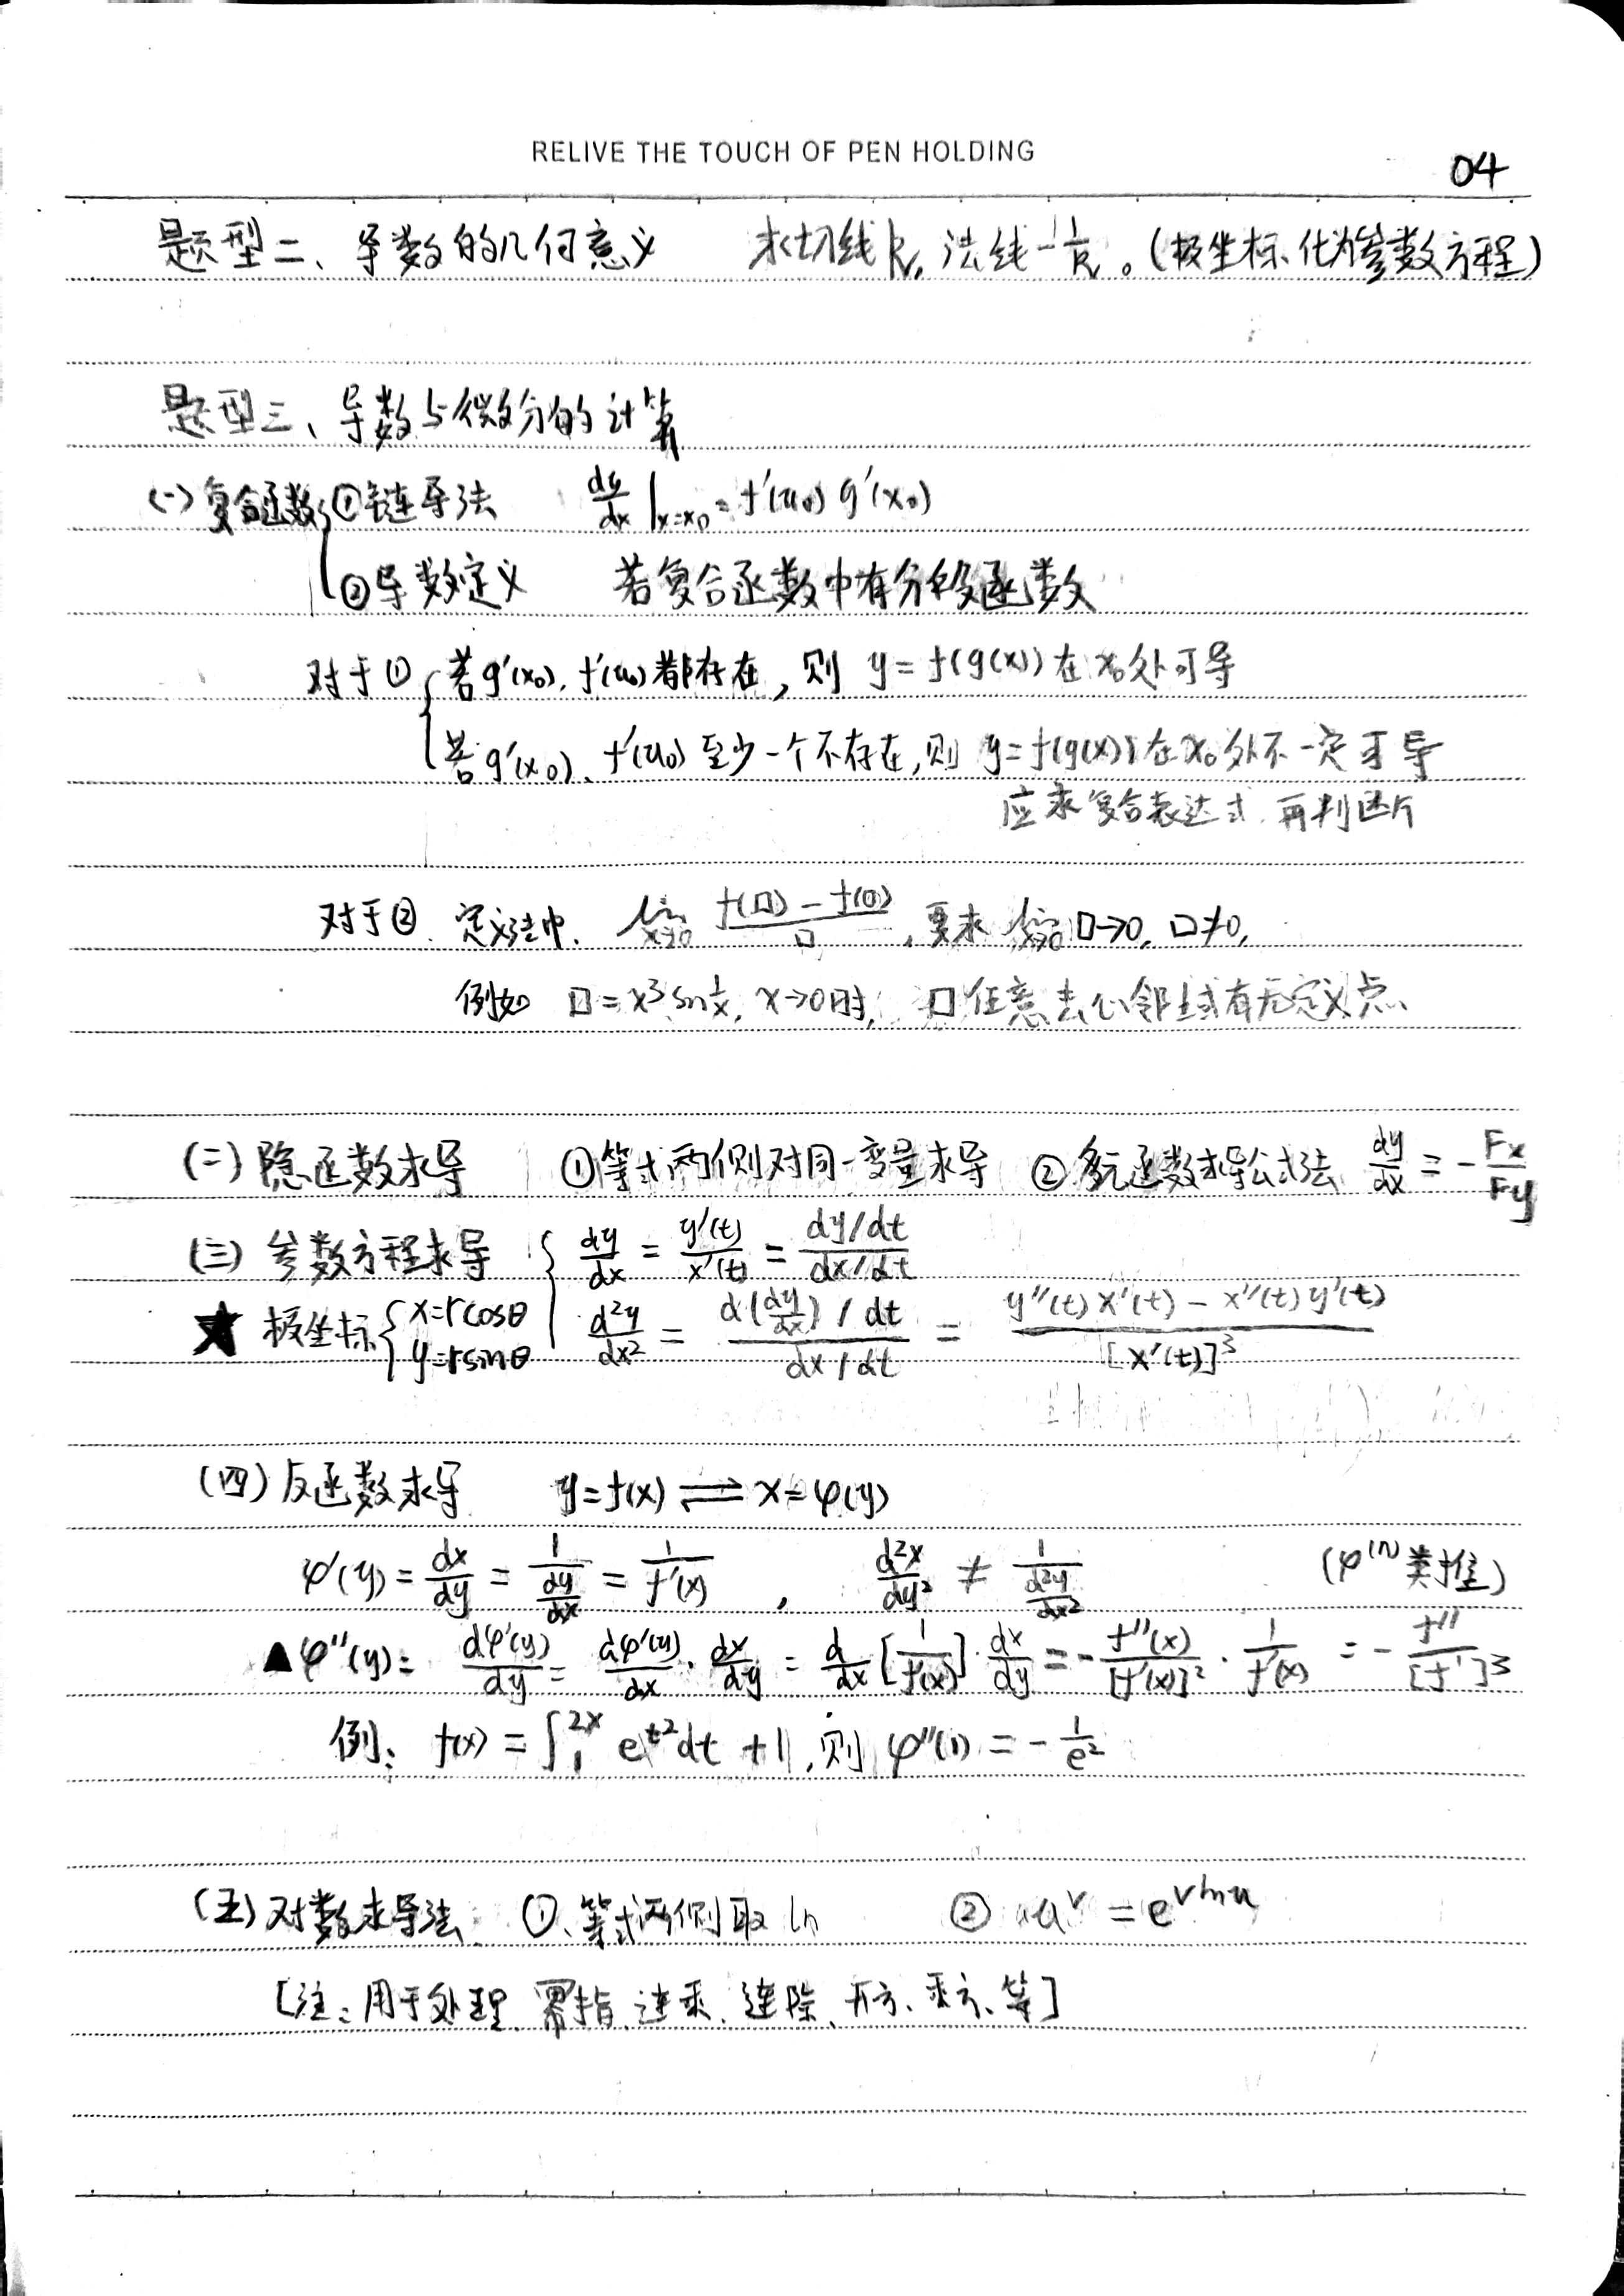 RELIVE THE TOUCH OF PEN HOLDING
04
题型二、导数的几何意义 求切线k, 法线-1/k。(极坐标化为参数方程)
题型三、导数与微分的计算
(一) 复合函数 { ①链导法 dy/dx |x=x₀ = f'(u₀) g'(x₀)
②导数定义 若复合函数中有分段函数
对于① { 若g'(x₀), f'(u₀)都存在, 则 y = f(g(x)) 在x₀处可导
若g'(x₀)、f'(u₀) 至少一个不存在, 则 y = f(g(x)) 在x₀处不一定可导
应求复合表达式, 再判断
对于②. 定义法中. lim x→0 (f(□) - f(0))/□, 要求 lim x→0 □→0, □≠0,
例如 □ = x³sin 1/x, x→0时, □任意去心邻域有无定义点.
(二) 隐函数求导 ①等式两侧对同一变量求导 ②多元函数求导公式法 dy/dx = - Fx/Fy
(三) 参数方程求导 { dy/dx = y'(t)/x'(t) = (dy/dt)/(dx/dt)
★ 极坐标 { x=rcosθ y=rsinθ d²y/dx² = (d(dy/dx)/dt)/(dx/dt) = (y''(t)x'(t) - x''(t)y'(t))/[x'(t)]³
(四) 反函数求导 y=f(x) ⇌ x=φ(y)
φ'(y) = dx/dy = 1/(dy/dx) = 1/f'(x) , d²x/dy² ≠ 1/(d²y/dx²) (φ⁽ⁿ⁾类推)
▲φ''(y) = dφ'(y)/dy = dφ'(y)/dx · dx/dy = d/dx [1/f'(x)] · dx/dy = - f''(x)/[f'(x)]² · 1/f'(x) = - f''/[f']³
例: f(x) = ∫₁²ˣ e^(t²)dt + 1, 则 φ''(1) = - 1/e²
(五) 对数求导法. ①、等式两侧取ln ② uᵛ = e^(vlnu)
[注: 用于处理 幂指、连乘、连除、开方、乘方、等]